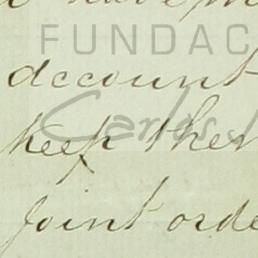 FUNDAC
account
Carlos
keep them
Joint orde